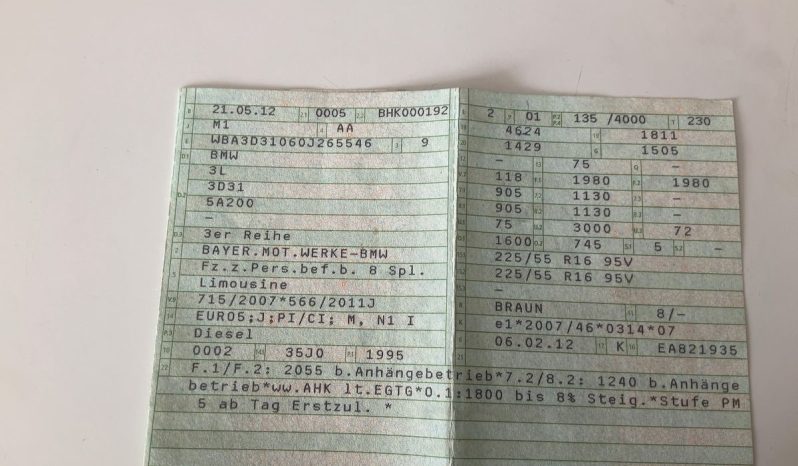 21.05.12 0005 BHK000192
M1 AA
WBA3D31060J265546 9
BMW
3L
3D31
5A200
–
3er Reihe
BAYER.MOT.WERKE-BMW
Fz.z.Pers.bef.b. 8 Spl.
Limousine
715/2007*566/2011J
EURO5;J;PI/CI; M, N1 I
Diesel
0002 35J0 1995
2 01 135 /4000 230
4624 1811
1429 1505
– 75 –
118 1980 1980
905 1130 –
905 1130 –
75 3000 72
1600 745 5 –
225/55 R16 95V
225/55 R16 95V
–
BRAUN 8/–
e1*2007/46*0314*07
06.02.12 K EA821935
F.1/F.2: 2055 b.Anhängebetrieb*7.2/8.2: 1240 b.Anhänge
betrieb*ww.AHK lt.EGTG*0.1:1800 bis 8% Steig.*Stufe PM
5 ab Tag Erstzul. *